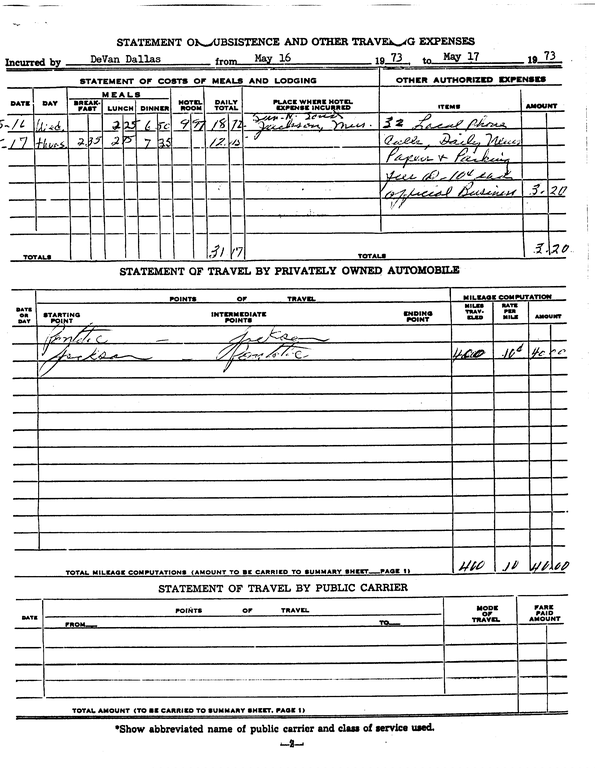 STATEMENT OF SUBSISTENCE AND OTHER TRAVELING EXPENSES
Incurred by DeVan Dallas from May 16 1973 to May 17 1973
STATEMENT OF COSTS OF MEALS AND LODGING OTHER AUTHORIZED EXPENSES
DATE DAY MEALS BREAK-FAST LUNCH DINNER HOTEL ROOM DAILY TOTAL PLACE WHERE HOTEL EXPENSE INCURRED ITEMS AMOUNT
5-16 Wed. 2 25 6 50 9 97 18 72 Jackson, Miss. 32 Local Phone
-17 thurs. 2.35 2 75 7 35 12.45 Calls, Daily News
Papers & Parking
fee @ 10¢ each
official Business 3.20
TOTALS 31 17 TOTALS 3.20
STATEMENT OF TRAVEL BY PRIVATELY OWNED AUTOMOBILE
DATE OR DAY POINTS OF TRAVEL MILEAGE COMPUTATION
STARTING POINT INTERMEDIATE POINTS ENDING POINT MILES TRAV-ELED RATE PER MILE AMOUNT
Pontotoc — Jackson
Jackson — Pontotoc 400 .10¢ 40.00
TOTAL MILEAGE COMPUTATIONS (AMOUNT TO BE CARRIED TO SUMMARY SHEET—PAGE 1) 400 .10 40.00
STATEMENT OF TRAVEL BY PUBLIC CARRIER
DATE POINTS OF TRAVEL MODE OF TRAVEL FARE PAID AMOUNT
FROM— TO—
TOTAL AMOUNT (TO BE CARRIED TO SUMMARY SHEET. PAGE 1)
*Show abbreviated name of public carrier and class of service used.
—2—